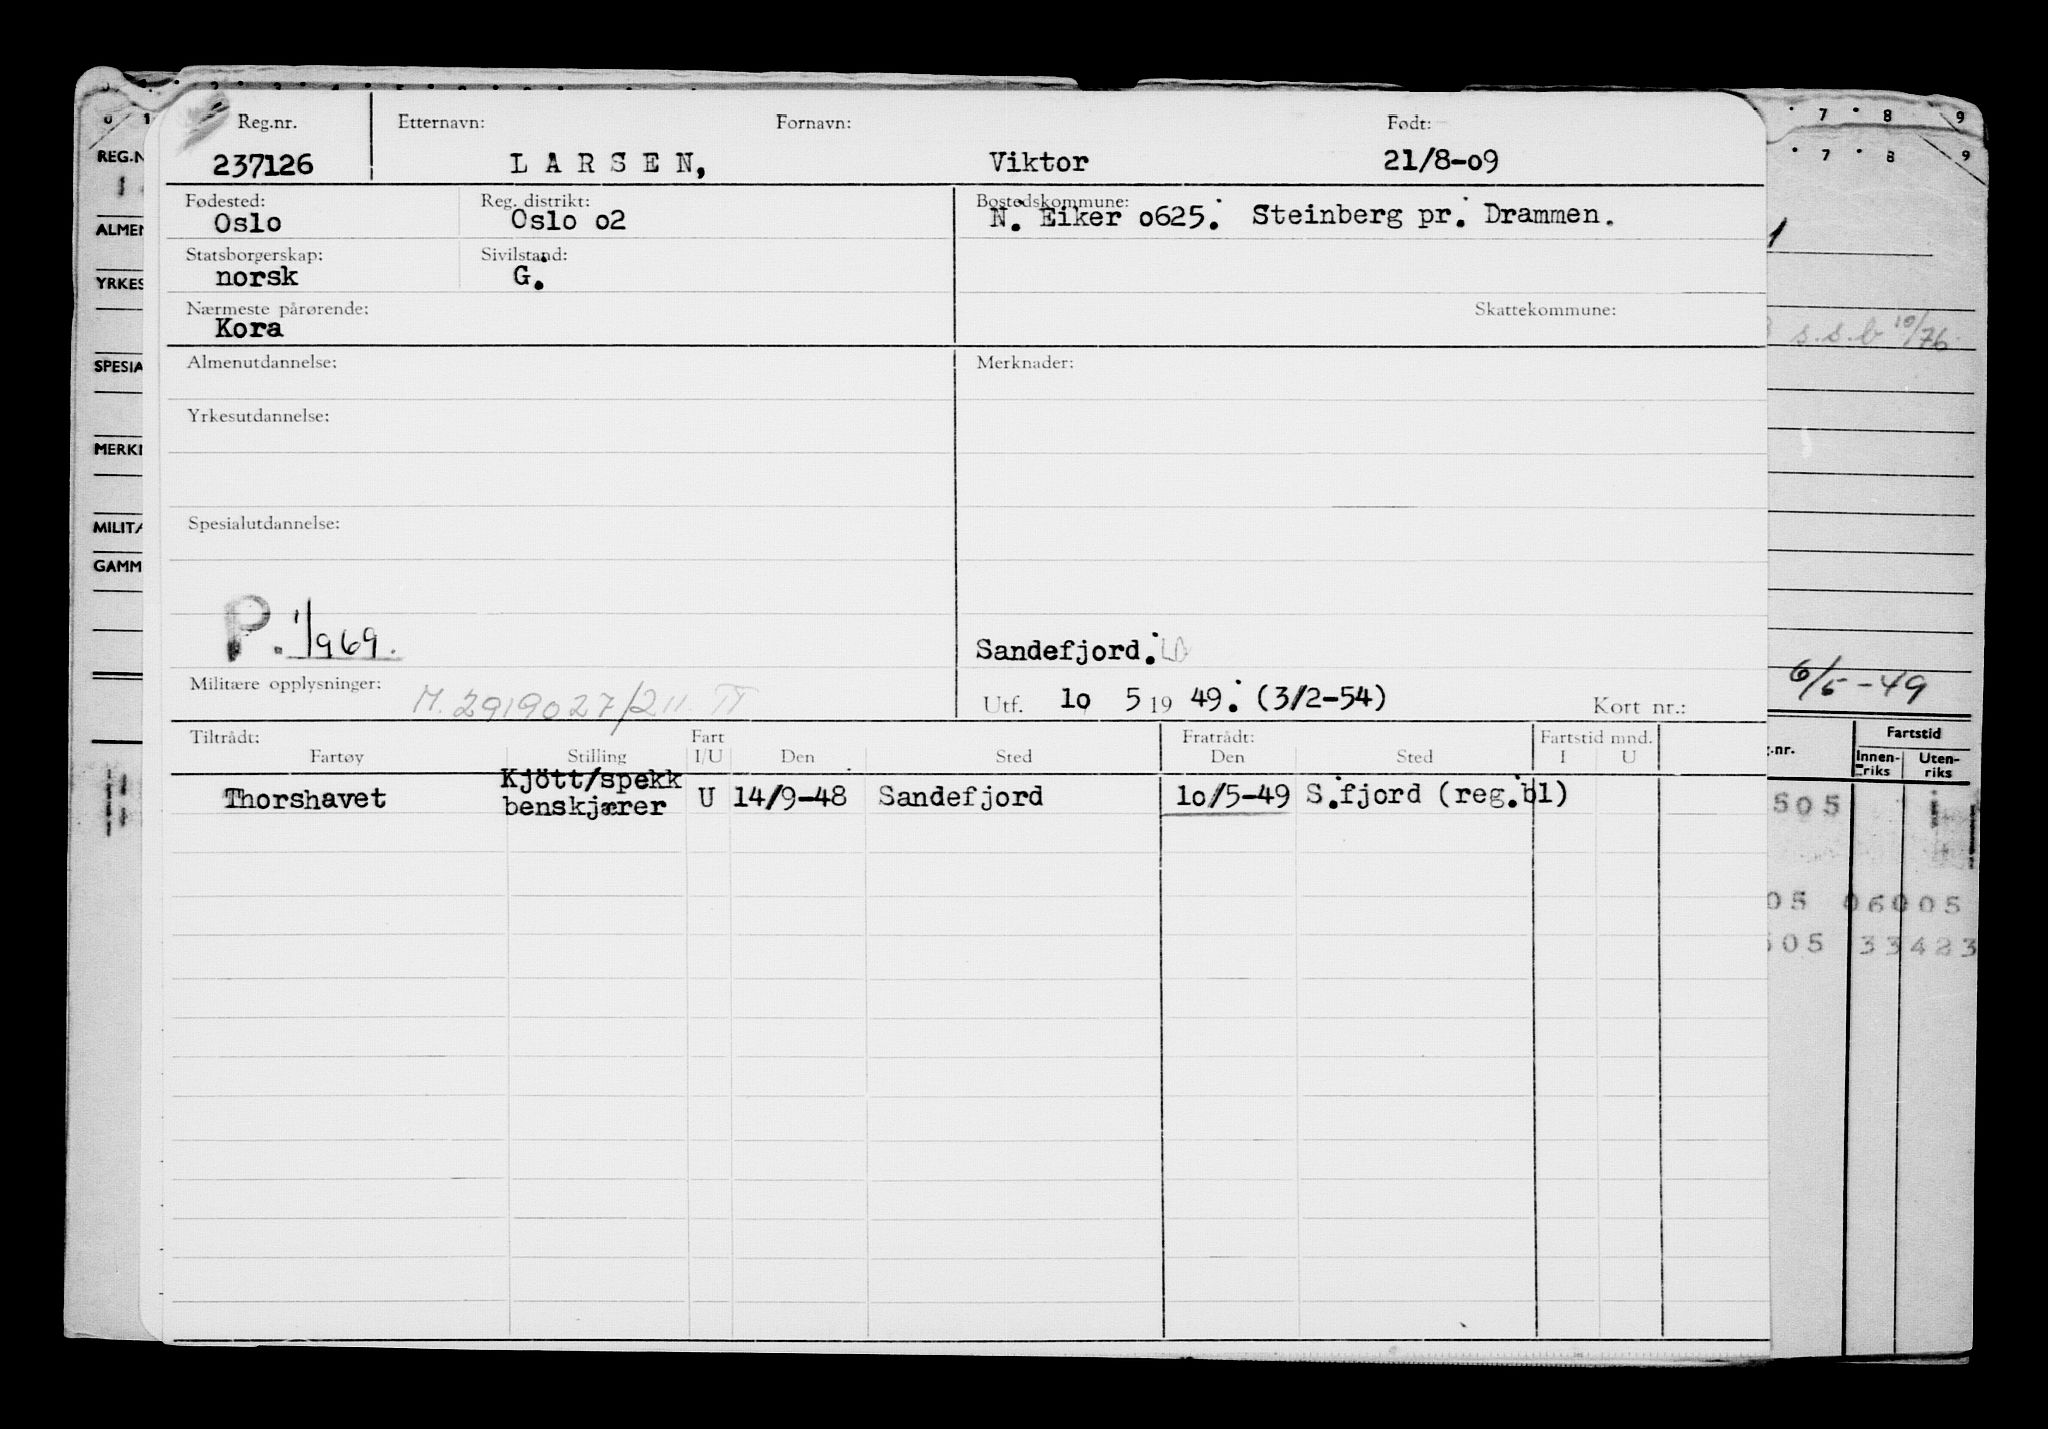 Reg.nr. Etternavn: Fornavn: Født:
237126 L A R S E N, Viktor 21/8-09
Fødested: Reg. distrikt: Bostedskommune:
Oslo Oslo o2 N. Eiker o625. Steinberg pr. Drammen.
Statsborgerskap: Sivilstand:
norsk G.
Nærmeste pårørende: Skattekommune:
Kora
Almenutdannelse: Merknader:
Yrkesutdannelse:
Spesialutdannelse:
P. 1/1969.
Sandefjord.
Militære opplysninger: M. 2919027/211 II
Utf. 1o 5 19 49. (3/2-54) Kort nr.:
Tiltrådt: Fart Fratrådt: Fartstid mnd.
Fartøy Stilling I/U Den Sted Den Sted I U
Kjött/spekk
Thorshavet benskjærer U 14/9-48 Sandefjord 1o/5-49 S.fjord (reg.bl)
REG.N
ALMEN
YRKES
SPESIA
MERKI
MILITA
GAMM
7 8 9
7 8 9
1
s.s.b 10/76
6/5-49
Fartstid
.nr. Innen-riks Uten-riks
505
05 06005
505 33423